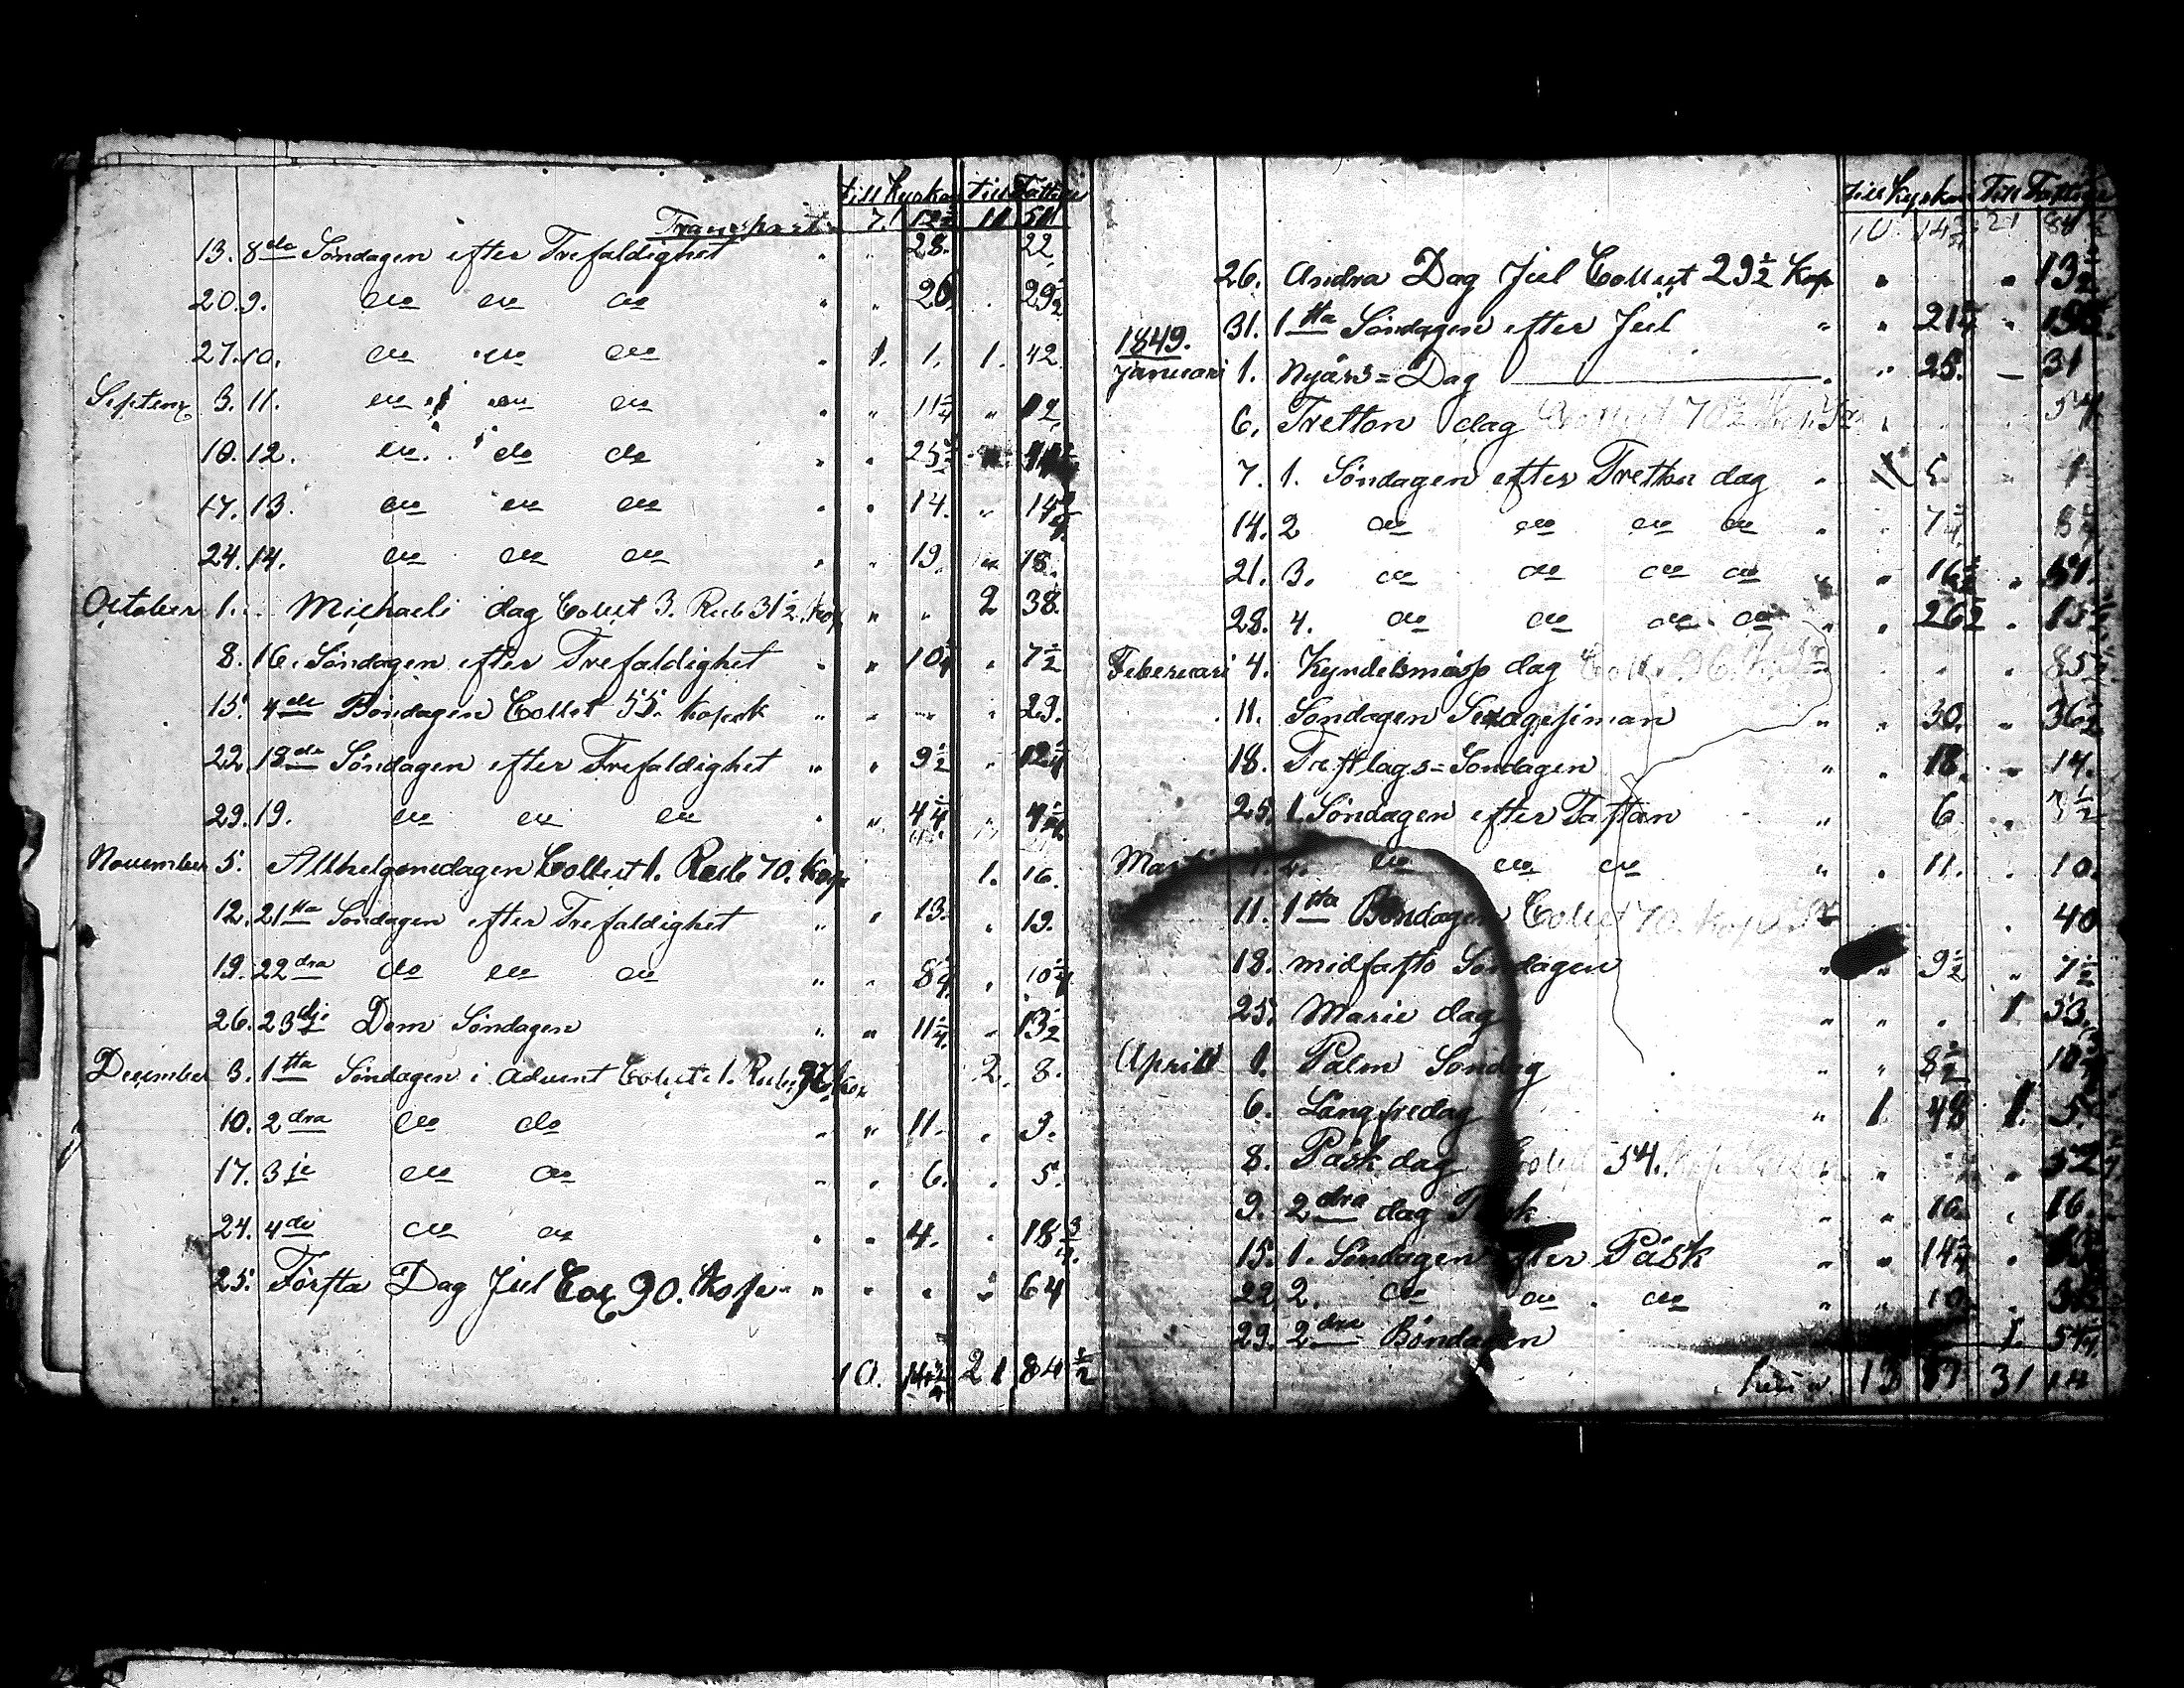 till Kyrkan till Fattiga
Transport 7. 12½ 11 51
13. 8de Söndagen efter Trefaldighet " " 28. 22
20. 9. do do do " " 20 29½
27. 10. do do do " 1. 1. 1. 42
Septem 3. 11. do do do " " 11¼ " 12
10. 12. do do do " "
17. 13. do do do " " 14. "
24. 14. do do do " " 19. " 18.
October 1. Michaeli dag Collect 3. Rub 31½ Kop " " 2 38.
8. 16. Söndagen efter Trefaldighet " " 10¼ " 7½
15. 4de Böndagen Collect 55. Kopek " " " 29.
22. 18de Söndagen efter Trefaldighet " " 9½ " 12¼
29. 19. do do do " " 4¼ "
November 5. Allhelgonedagen Collect 1. Rub 70. Kop 1. 16.
12. 21sta Söndagen efter Trefaldighet " " 13. " 19.
19. 22dra do do do " " 8¼ " 10¼
26. 23dje Dom Söndagen " " 11¼ " 13½
December 3. 1sta Söndagen i Advent Collect 1. Rub. Kop 2. 8.
10. 2dra do do " " 11. " 9.
17. 3je do do " " 6. " 5.
24. 4de do do " " 4. " 18¾
25. Första Dag Jul Col 90. Kop " " " " 64
10. 14¾ 21 84½
till Kyrkan Till Fattiga
10 14¾ 21 84½
26. Andra Dag Jul Collect 29½ Kop " " 13½
1849. 31. 1sta Söndagen efter Jul " " 21¼ "
Januari 1. Nyårs=Dag " 25. — 31
6. Tretton dag Collect 70½ 54
7. 1. Söndagen efter Tretton dag " 5 1
14. 2 do do do do " " 7¼
21. 3. do do do do " " 16½ " 51.
28. 4. do do do do " " 26½ " 15½
Februari 4. Kyndelsmässo dag 85½
11. Söndagen Sexagesiman " " 30. " 36½
18. Fastlags=Söndagen " " 18. " 14.
25. 1. Söndagen efter Fastan " 6 " ½
4. 2. do do do " " 11. " 10.
11. 1sta Böndagen Collect 70. Kop " 40
18. midfasto Söndagen " " 9½ " 7½
25. Marie dag " " " 1 53.
April 1. Palm Söndag " " 8½
6. Långfredag " 1. 48 1. 5.
8. Påsk dag Collect 54. " " 52
9. 2dra dag Påsk " " 16. " 16.
15. 1. Söndagen efter Påsk " " 14¼ "
22. 2. do do do " " 10. "
29. 2dra Böndagen 1. 54
13 31